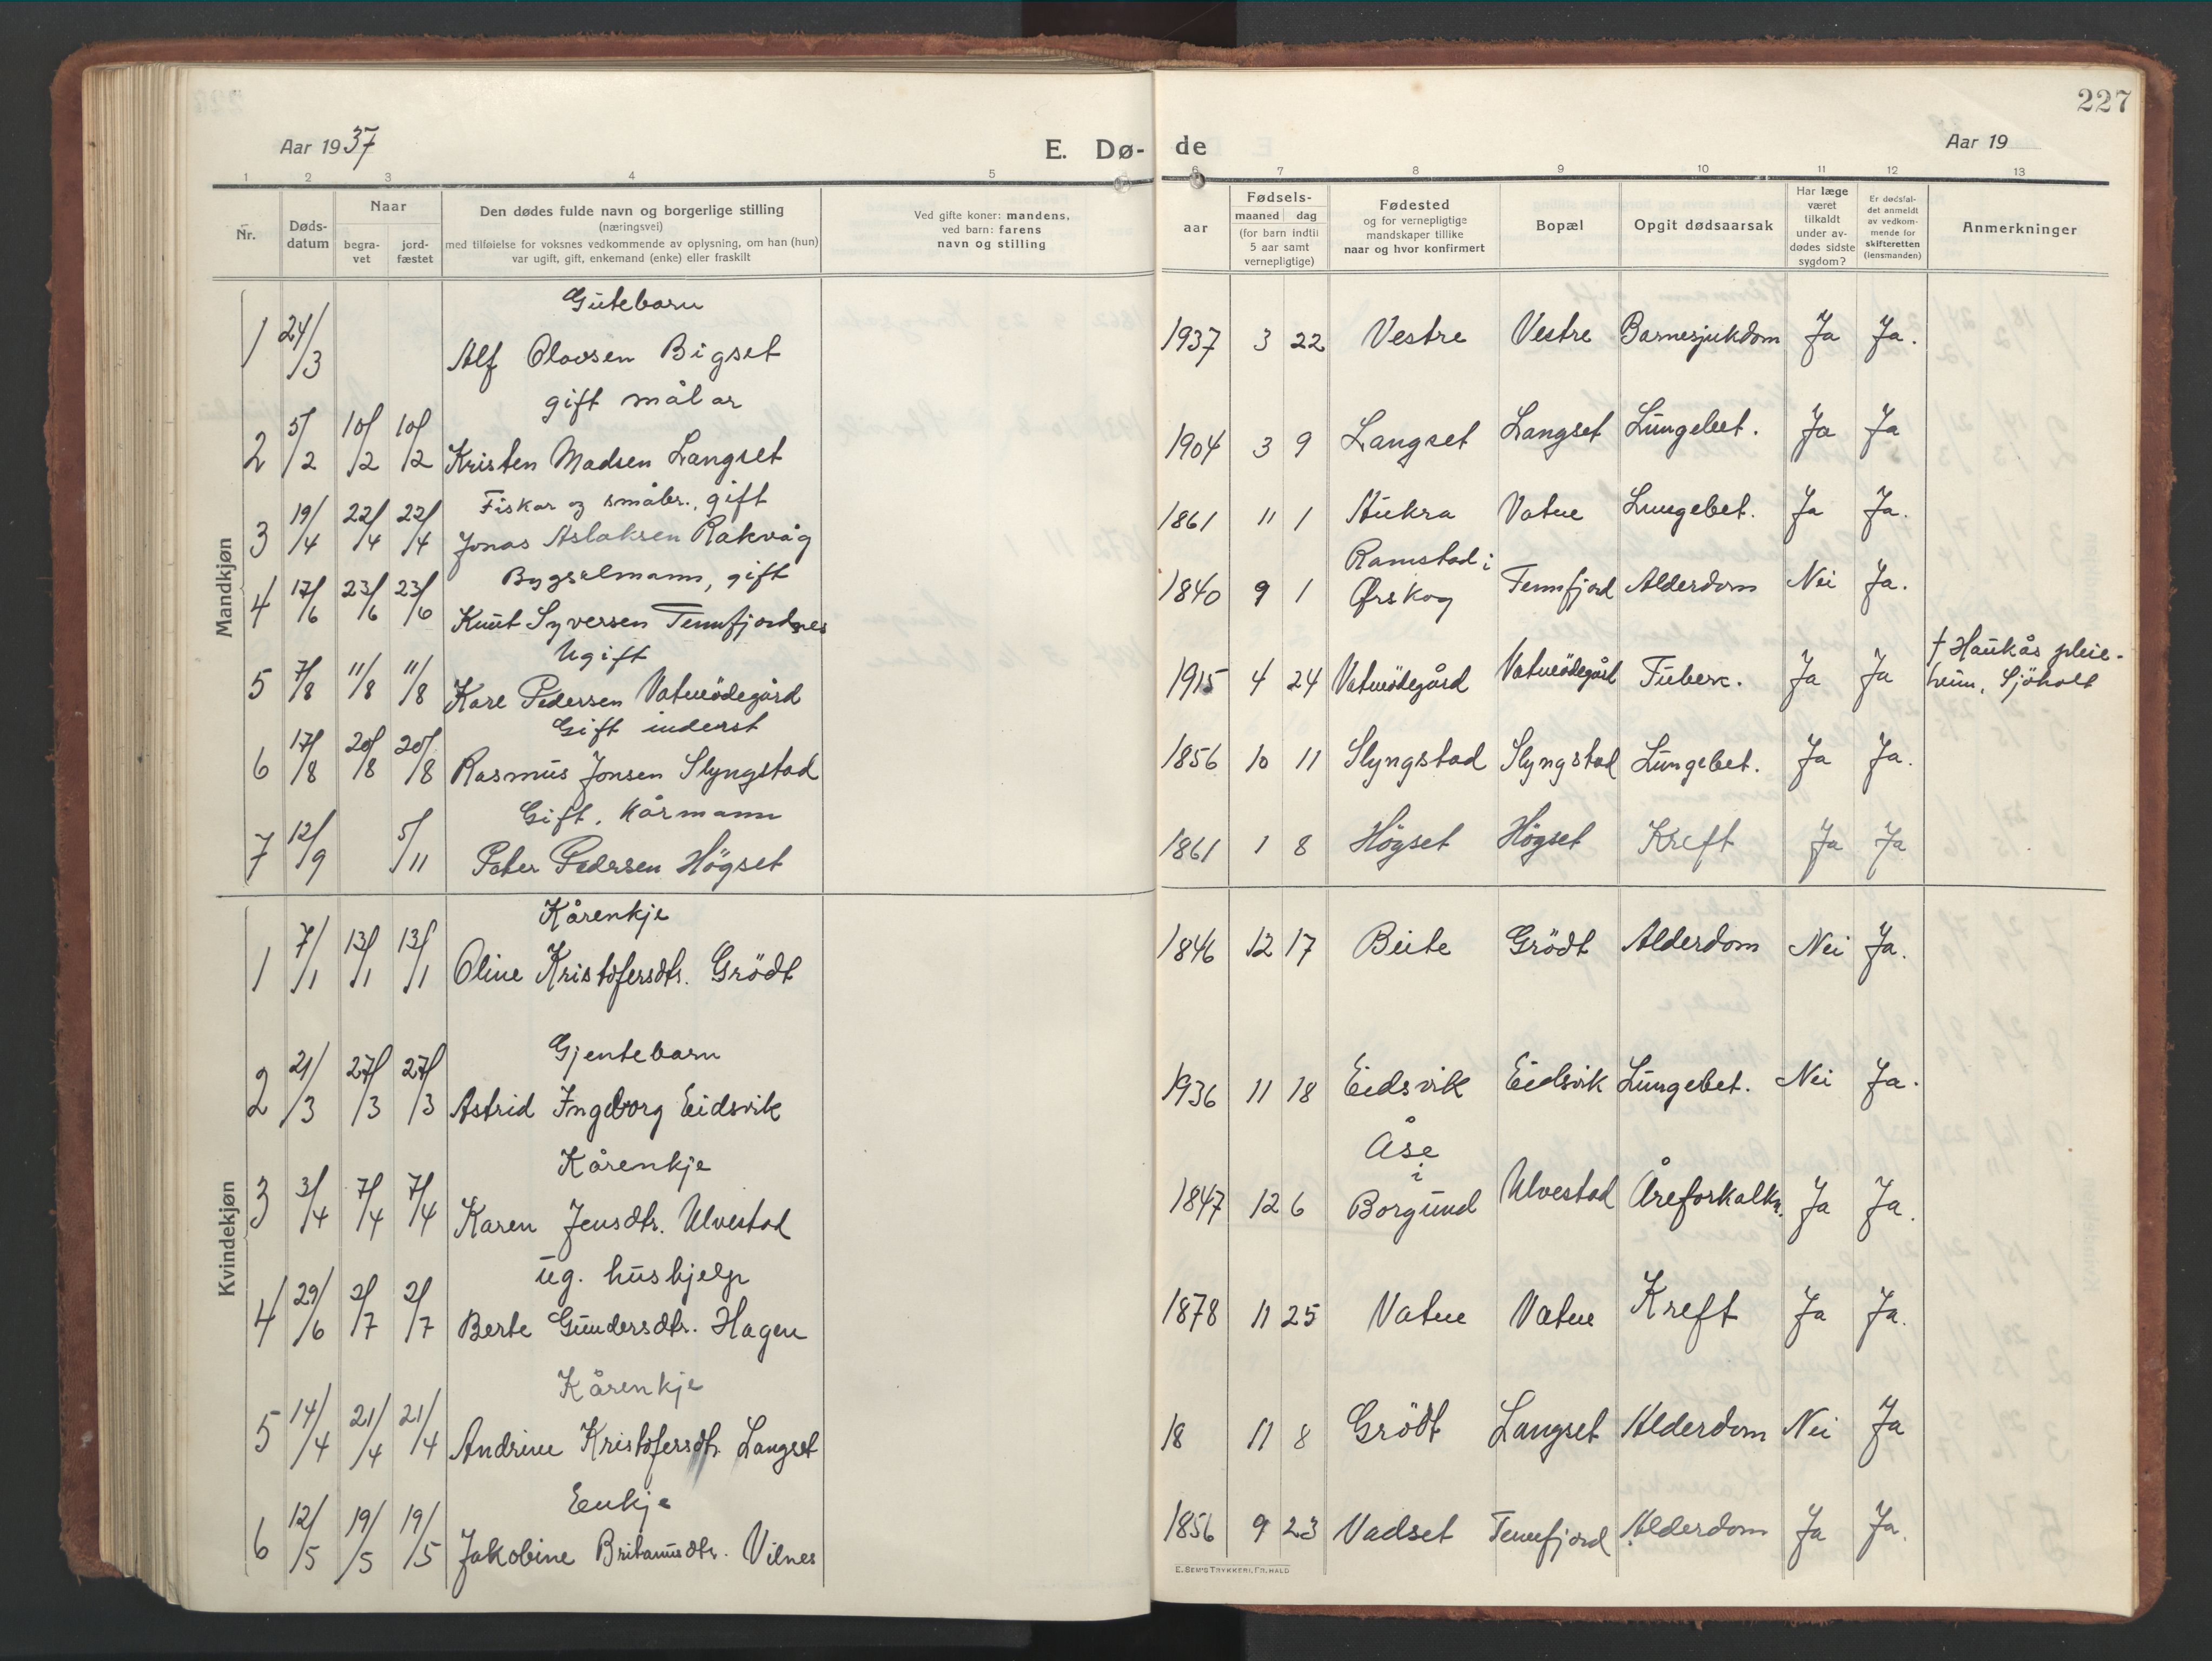 227
Aar 1937
E. Dø-
de
Aar 19
1 2 3 4 5 6 7 8 9 10 11 12 13
Nr.
Døds-
datum
Naar
begra-
vet
jord-
fæstet
Den dødes fulde navn og borgerlige stilling
(næringsvei)
med tilføielse for voksnes vedkommende av oplysning, om han (hun)
var ugift, gift, enkemand (enke) eller fraskilt
Ved gifte koner: mandens,
ved barn: farens
navn og stilling
aar
Fødsels-
maaned dag
(for barn indtil
5 aar samt
vernepligtige)
Fødested
og for vernepligtige
mandskaper tillike
naar og hvor konfirmert
Bopæl
Opgit dødsaarsak
Har læge
været
tilkaldt
under av-
dødes sidste
sygdom?
Er dødsfal-
det anmeldt
av vedkom-
mende for
skifteretten
(lensmanden)
Anmerkninger
Mandkjøn
Gutebarn
1 24/3 Alf Olavsen Bigset 1937 3 22 Vestre Vestre Barnesjukdom Ja Ja.
gift målar
2 5/2 10/2 10/2 Kristen Madsen Langset 1904 3 9 Langset Langset Lungebet. Ja Ja
Fiskar og småbr., gift
3 19/4 22/4 22/4 Jonas Aslaksen Rakvåg 1861 11 1 Aukra Vatne Lungebet. Ja Ja.
Bygselmann, gift
Ramstad i
4 17/6 23/6 23/6 Knut Syversen Tennfjordnes 1840 9 1 Ørskog Tennfjord Alderdom Nei Ja.
Ugift
† Haukås pleie-
5 7/8 11/8 11/8 Karl Pedersen Vatneödegård 1915 4 24 Vatneödegård Vatneödegård Tuberk. Ja Ja heim, Sjöholt
Gift inderst
6 17/8 20/8 20/8 Rasmus Jonsen Slyngstad 1856 10 11 Slyngstad Slyngstad Lungebet. Ja Ja.
Gift. Kårmann
7 12/9 5/11 Peter Pedersen Högset 1861 1 8 Högset Högset Kreft Ja Ja
Kvindekjøn
Kårenkje
1 7/1 13/1 13/1 Oline Kristofersdtr. Grödt 1846 12 17 Beite Grödt Alderdom Nei Ja.
Gjentebarn
2 21/3 27/3 27/3 Astrid Ingeborg Eidsvik 1936 11 18 Eidsvik Eidsvik Lungebet. Nei Ja.
Kårenkje
Åse
i
3 3/4 7/4 7/4 Karen Jensdtr. Ulvestad 1847 12 6 Borgund Ulvestad Åreforkalkn. Ja Ja.
ug. hushjelp
4 29/6 2/7 2/7 Berte Gundersdtr. Hagen 1878 11 25 Vatne Vatne Kreft Ja Ja.
Kårenkje
5 14/4 21/4 21/4 Andrine Kristofersdtr. Langset 18 11 8 Grödt Langset Alderdom Nei Ja
Enkje
6 12/5 19/5 19/5 Jakobine Britanusdtr. Vilnes 1856 9 23 Vadset Tennfjord Alderdom Ja Ja.
E. SEM'S TRYKKERI, FR.HALD